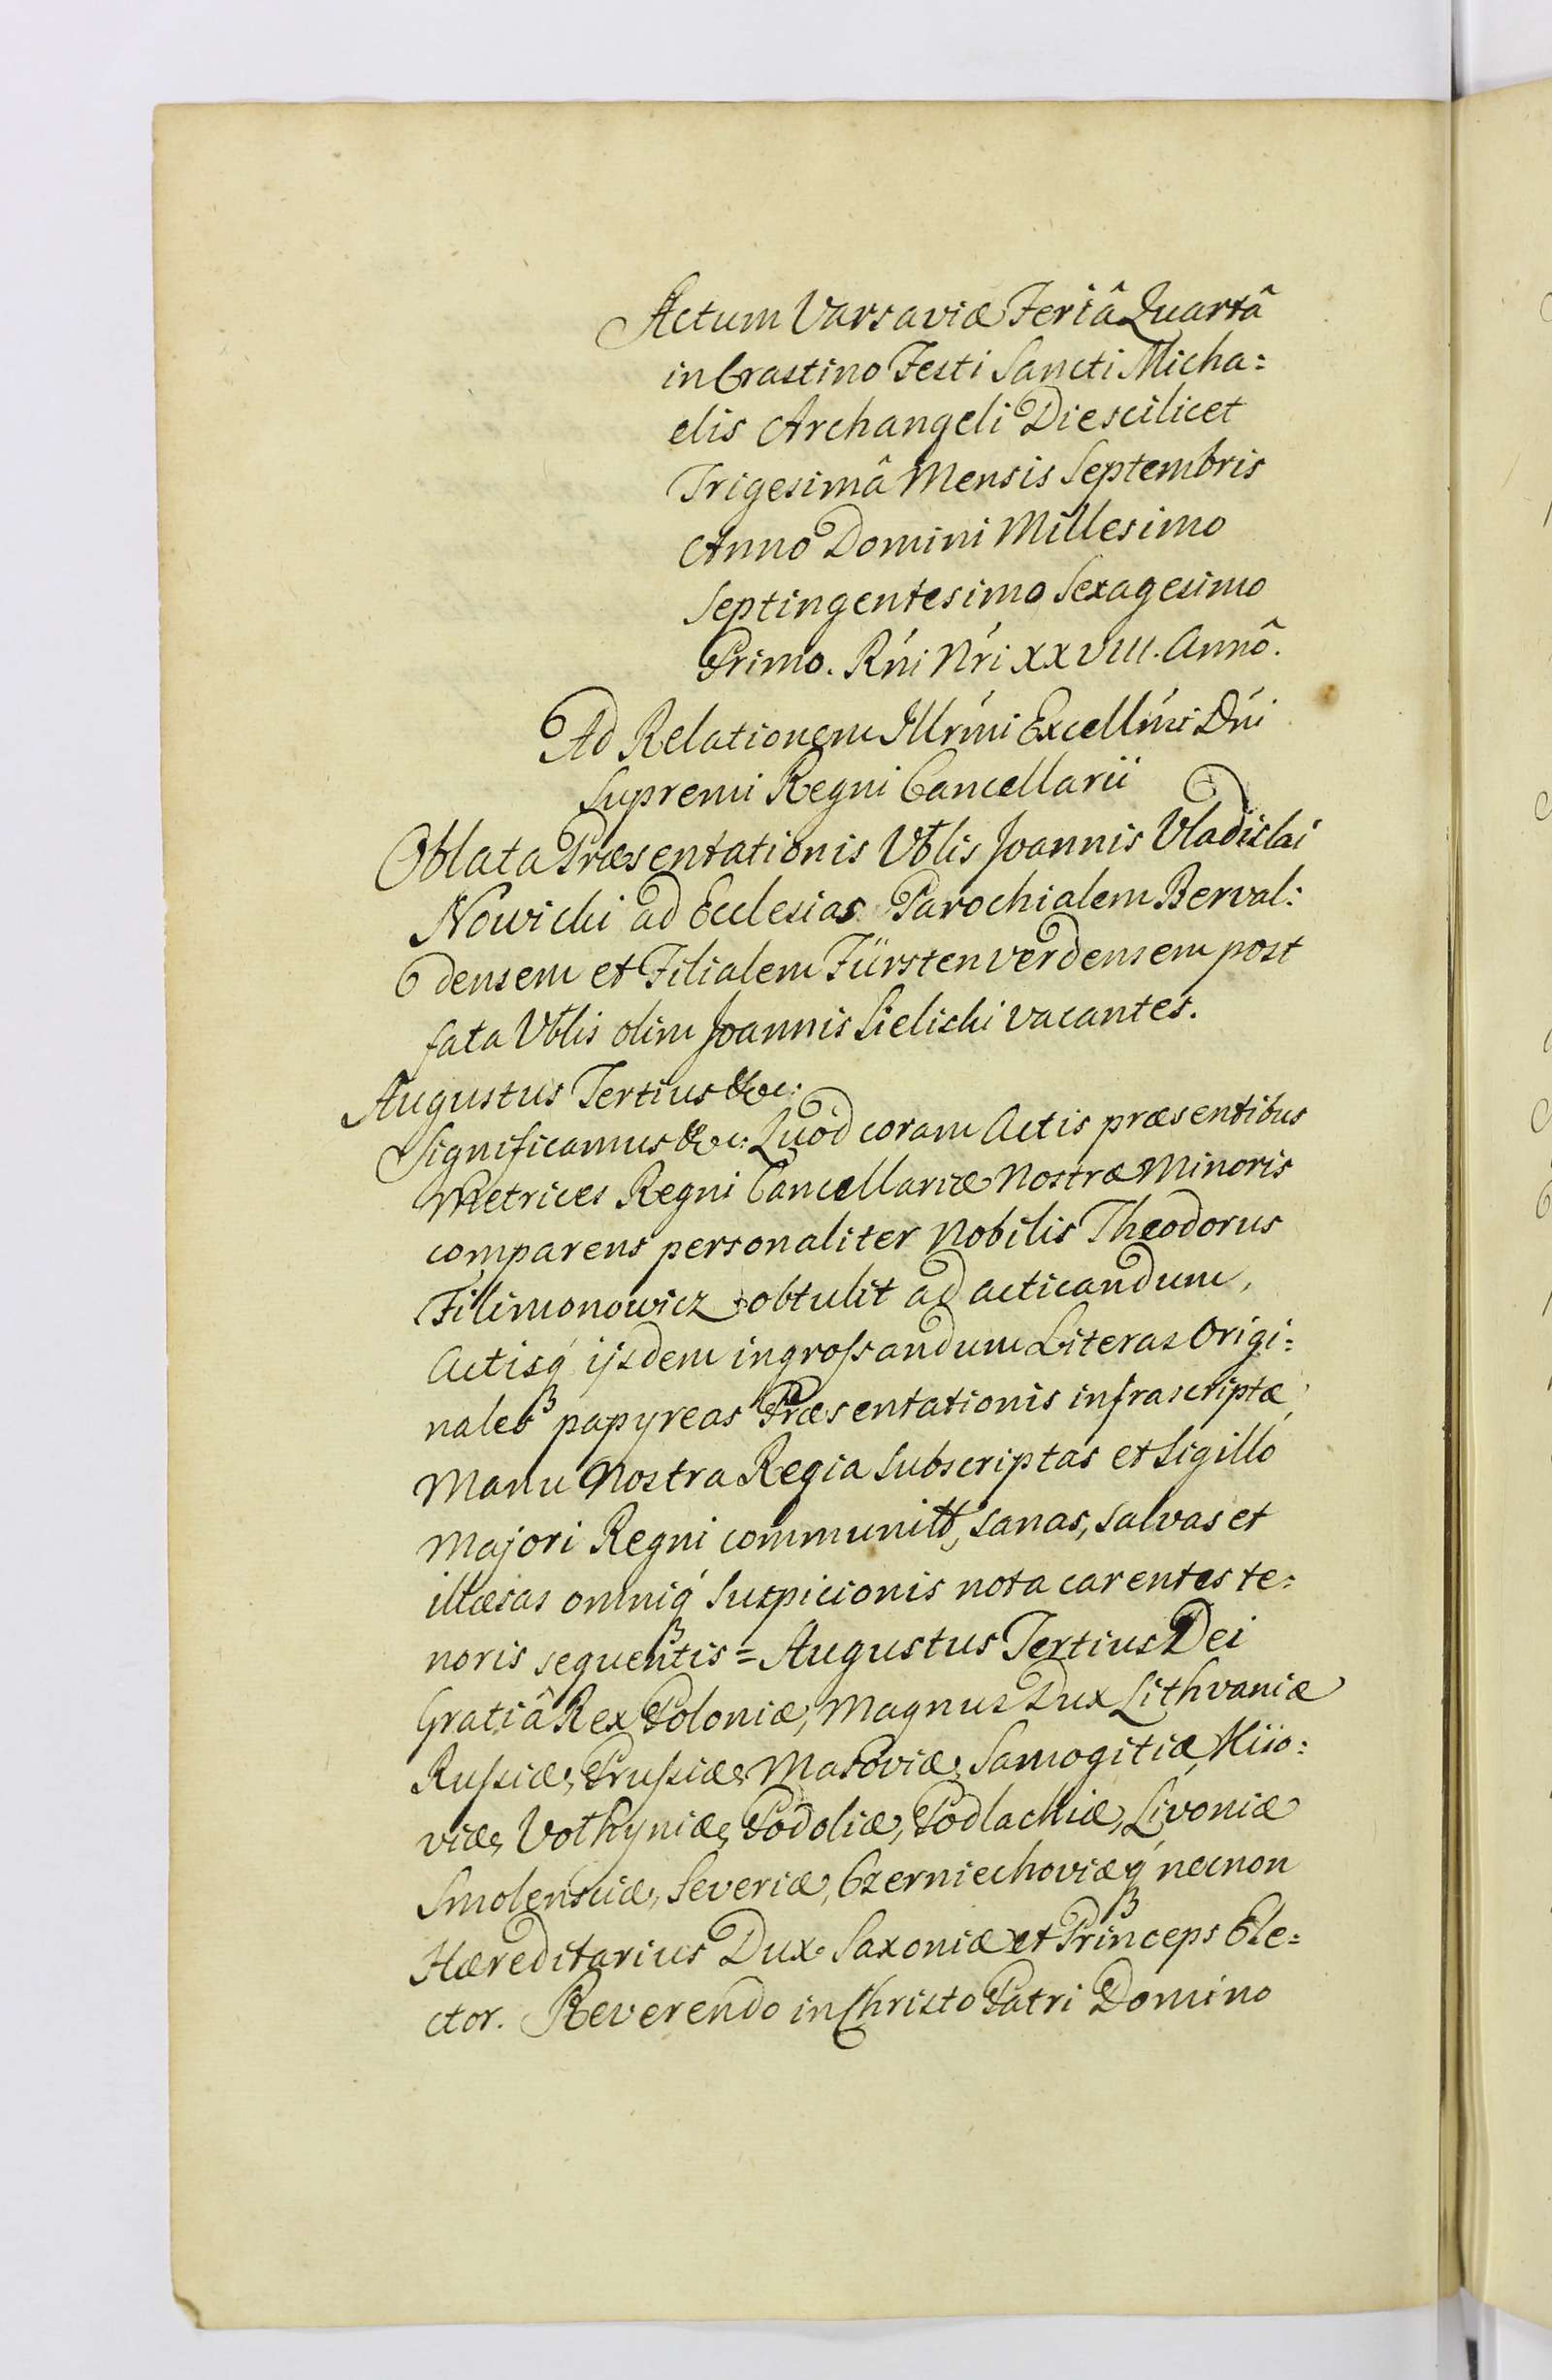 Actum Varsaviæ Feriâ Quartâ
in Crastino Festi Sancti Micha=
elis Archangeli Die scilicet
Trigesimâ Mensis Septembris
Anno Domini Millesimo
Septingentesimo Sexagesimo
Primo. Rńi Nŕi XXVIII. Annô.
Ad Relationem Illrḿi Excellḿi Dńi
Supremi Regni Cancellarii
Oblata Præsentationis Vblis Joannis Vladislai
Nowicki ad Ecclesias Parochialem Berval:
densem et Filialem Fürstenverdensem post
fata Vblis olim Joannis Sielicki vacantes.
Augustus Tertius &c:
Significamus &c: Quòd coram Actis præsentibus
Metrices Regni Cancellariæ Nostræ Minoris
comparens personaliter Nobilis Theodorus
Filimonowicz obtulit ad acticandum,
Actisq́ ijsdem ingrossandum Literas Origi=
nales papyreas Præsentationis infrascriptæ,
Manu Nostra Regia Subscriptas et Sigillo
Majori Regni communitt, sanas, salvas et
illæsas omniq́ Suspicionis nota carentes te=
noris sequentis = Augustus Tertius Dei
Gratiâ Rex Poloniæ, Magnus Dux Lithvaniæ
Russiæ, Prussiæ, Masoviæ, Samogitiæ, Kiio=
viæ, Volhyniæ, Podoliæ, Podlachiæ, Livoniæ
Smolensciæ, Severiæ, Czerniechoviæq́ necnon
Hæreditarius Dux Saxoniæ et Princeps Ele=
ctor. Reverendo in Christo Patri Domino